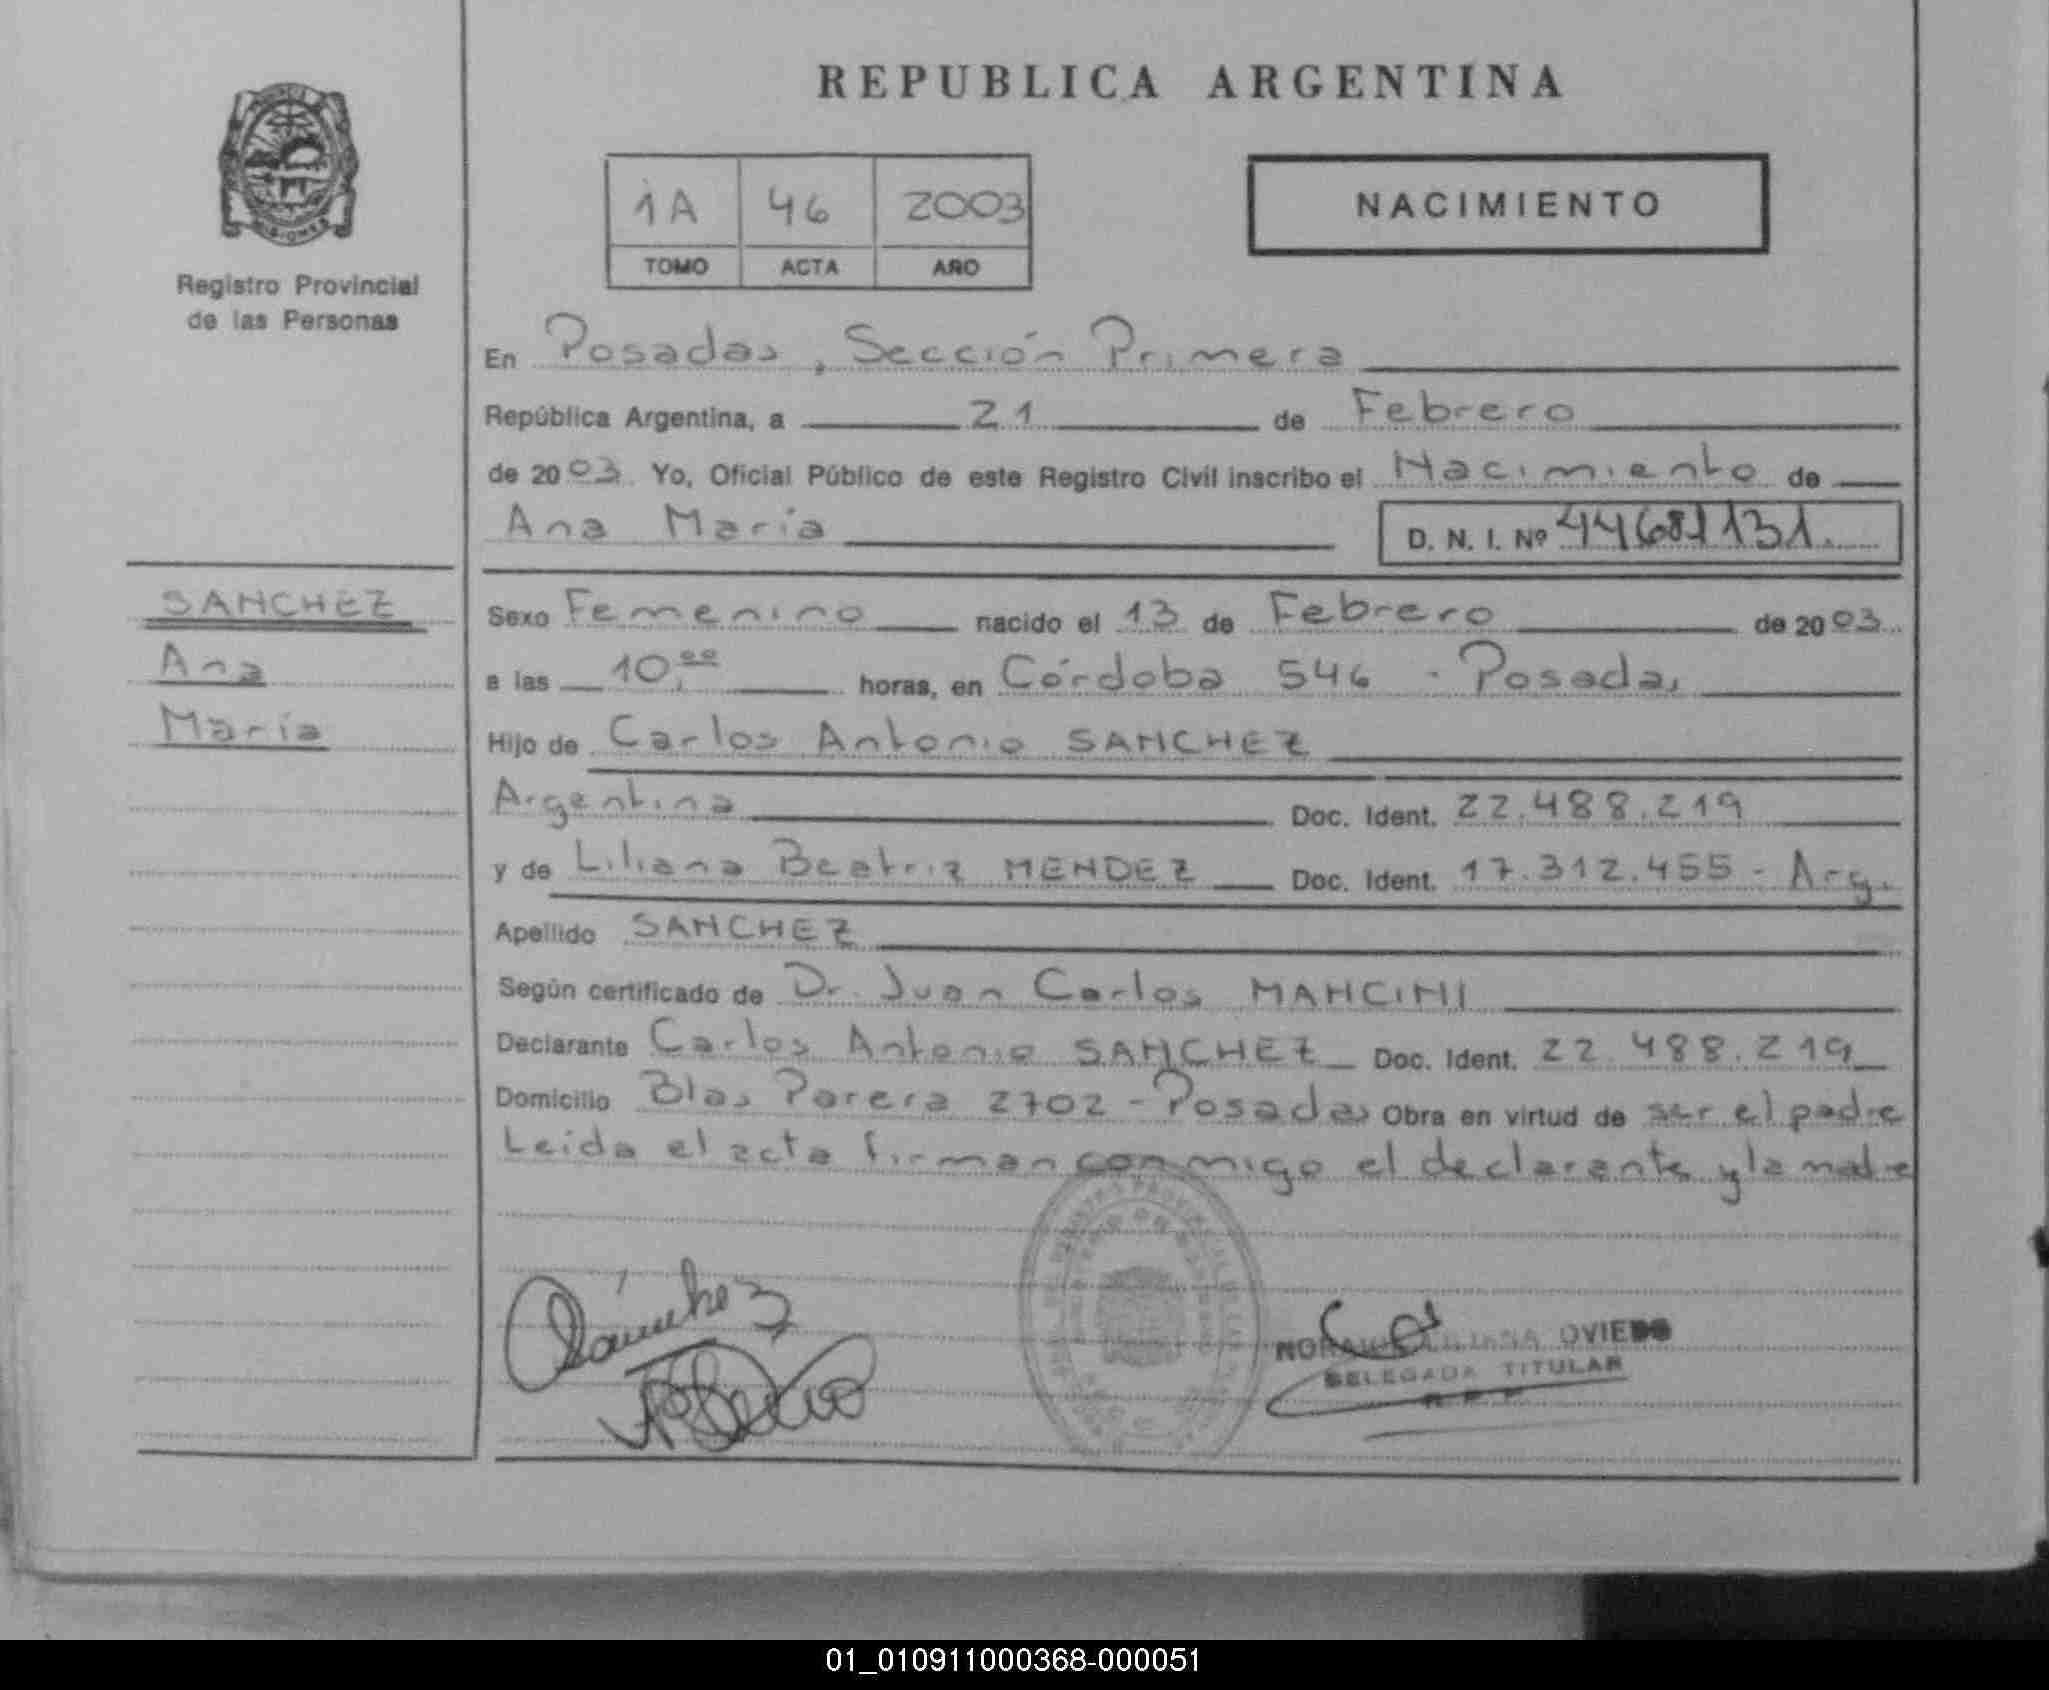 REPUBLICA ARGENTINA
1A 46 2003
TOMO ACTA AÑO
NACIMIENTO
Registro Provincial
de las Personas
En Posadas, Sección Primera
República Argentina, a 21 de Febrero
de 2003. Yo, Oficial Público de este Registro Civil inscribo el Nacimiento de
Ana María D. N. I. Nº 44681131.
SANCHEZ
Ana
María
Sexo Femenino nacido el 13 de Febrero de 2003
a las 10,00 horas, en Córdoba 546 - Posadas
Hijo de Carlos Antonio SANCHEZ
Argentina Doc. Ident. 22.488.219
y de Liliana Beatriz MENDEZ Doc. Ident. 17.312.455 - Arg.
Apellido SANCHEZ
Según certificado de Dr. Juan Carlos MANCINI
Declarante Carlos Antonio SANCHEZ Doc. Ident. 22.488.219
Domicilio Blas Parera 2702 - Posadas Obra en virtud de ser el padre
Leída el acta firman conmigo el declarante y la madre
Sánchez
OVIEDO
DELEGADA TITULAR
01_010911000368-000051